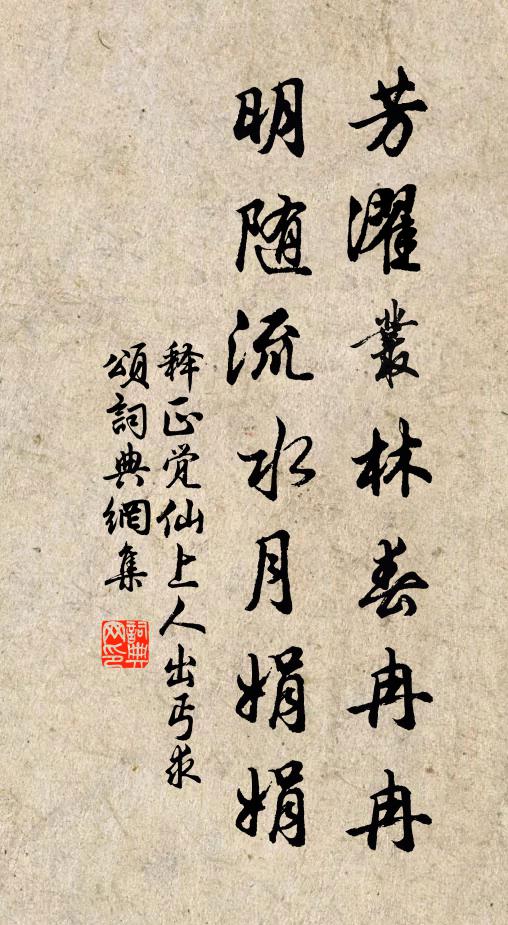 芳濯叢林春冉冉
明随流水月娟娟
释正觉仙上人出丐求
頌詞典網集
詞典
网印